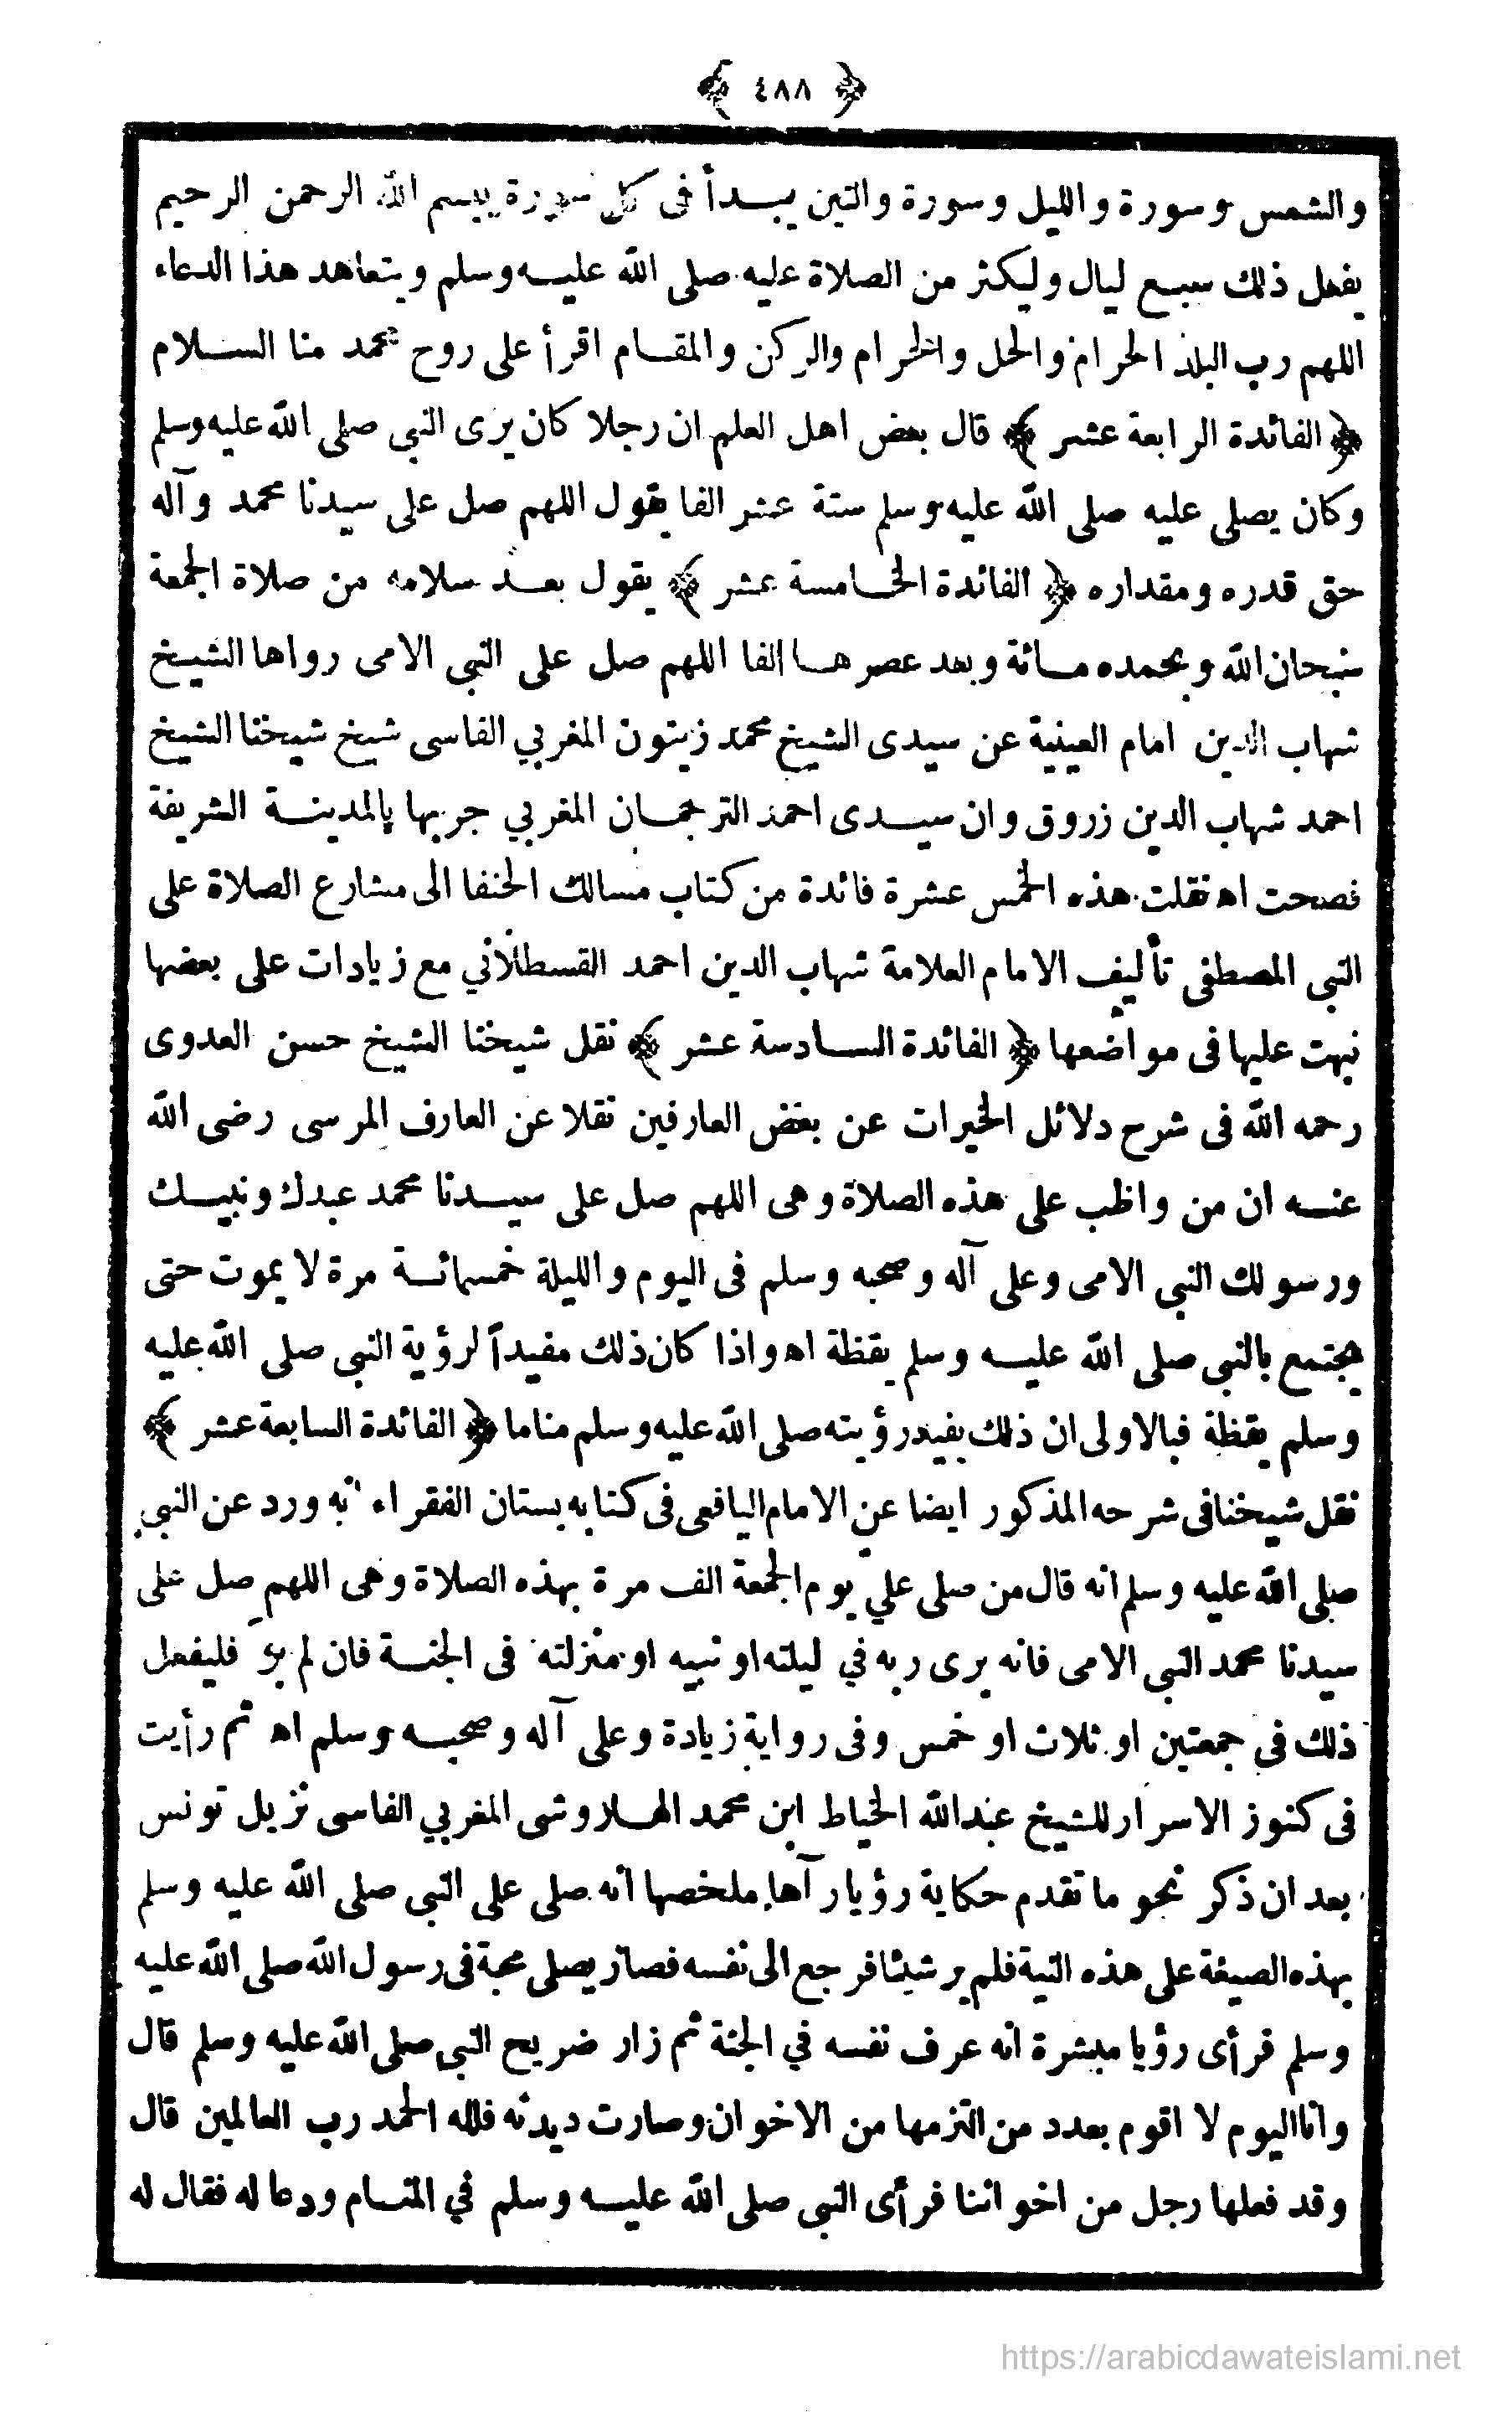 ﴿ ٤٨٨ ﴾
والشمس وسورة والليل وسورة والتين يبدأ فى كل سورة ببسم الله الرحمن الرحيم
يفعل ذلك سبع ليال وليكثر من الصلاة عليه صلى الله عليه وسلم ويتعاهد هذا الدعاء
اللهم رب البلد الحرام والحل والحرام والركن والمقام اقرأ على روح محمد منا السلام
﴿ الفائدة الرابعة عشر ﴾ قال بعض اهل العلم ان رجلا كان يرى النبى صلى الله عليه وسلم
وكان يصلى عليه صلى الله عليه وسلم ستة عشر الفا يقول اللهم صل على سيدنا محمد وآله
حق قدره ومقداره ﴿ الفائدة الخامسة عشر ﴾ يقول بعد سلامه من صلاة الجمعة
سبحان الله وبحمده مائة وبعد عصرها الفا اللهم صل على النبى الامى رواها الشيخ
شهاب الدين امام العينية عن سيدى الشيخ محمد زيتون المغربي الفاسى شيخ شيخنا الشيخ
احمد شهاب الدين زروق وان سيدى احمد الترجمان المغربي جربها بالمدينة الشريفة
فصحت اه نقلت هذه الخمس عشرة فائدة من كتاب مسالك الحنفا الى مشارع الصلاة على
النبى المصطفى تأليف الامام العلامة شهاب الدين احمد القسطلاني مع زيادات على بعضها
نبهت عليها فى مواضعها ﴿ الفائدة السادسة عشر ﴾ نقل شيخنا الشيخ حسن العدوى
رحمه الله فى شرح دلائل الخيرات عن بعض العارفين نقلا عن العارف المرسى رضى الله
عنه ان من واظب على هذه الصلاة وهى اللهم صل على سيدنا محمد عبدك ونبيك
ورسولك النبى الامى وعلى آله وصحبه وسلم فى اليوم والليلة خمسمائة مرة لا يموت حتى
يجتمع بالنبى صلى الله عليه وسلم يقظة اه واذا كان ذلك مفيداً لرؤية النبى صلى الله عليه
وسلم يقظة فبالاولى ان ذلك يفيد رؤيته صلى الله عليه وسلم مناما ﴿ الفائدة السابعة عشر ﴾
نقل شيخنا فى شرحه المذكور ايضا عن الامام اليافعى فى كتابه بستان الفقراء انه ورد عن النبى
صلى الله عليه وسلم انه قال من صلى علي يوم الجمعة الف مرة بهذه الصلاة وهى اللهم صل على
سيدنا محمد النبى الامى فانه يرى ربه في ليلته او نبيه او منزلته فى الجنة فان لم ير فليفعل
ذلك فى جمعتين او ثلاث او خمس وفى رواية زيادة وعلى آله وصحبه وسلم اه ثم رأيت
فى كنوز الاسرار للشيخ عبدالله الخياط ابن محمد الهاروشى المغربي الفاسى نزيل تونس
بعد ان ذكر نحو ما تقدم حكاية رؤيا رآها ملخصها انه صلى على النبى صلى الله عليه وسلم
بهذه الصيغة على هذه النية فلم ير شيئا فرجع الى نفسه فصار يصلى محبة فى رسول الله صلى الله عليه
وسلم فرأى رؤيا مبشرة انه عرف نفسه في الجنة ثم زار ضريح النبى صلى الله عليه وسلم قال
وانا اليوم لا اقوم بعدد من التزمها من الاخوان وصارت ديدنه فلله الحمد رب العالمين قال
وقد فعلها رجل من اخواننا فرأى النبى صلى الله عليه وسلم في المنام ودعا له فقال له
https://arabicdawateislami.net